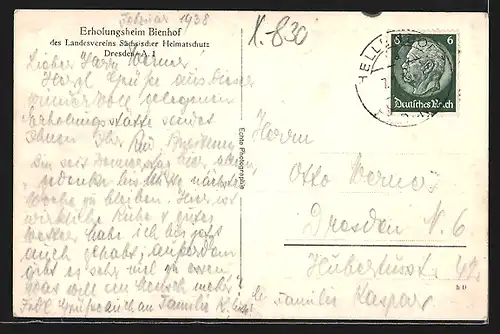 Februar 1938
Erholungsheim Bienhof
des Landesvereins Sächsischer Heimatschutz
Dresden-A. 1
Lieber Herr Werner
Herzl. Grüße aus dieser
wundervoll gelegenen
Erholungsstätte sendet
Ihnen Ihr
bin seit Donnerstag hier,
gedenke bis Mitte nächster
Woche zu bleiben. Hier ist
wirkliche Ruhe u. gutes
Wetter habe ich bis jetzt
auch gehabt, außerdem
gibt es sehr viel zu essen,
was will ein Mensch mehr?
Grüße auch an Familie K.
Echte Photographie
K. 830
6
Deutsches Reich
Herrn
Otto Werner
Dresden N. 6
Hubertusstr. 42
bei Familie Kaspar